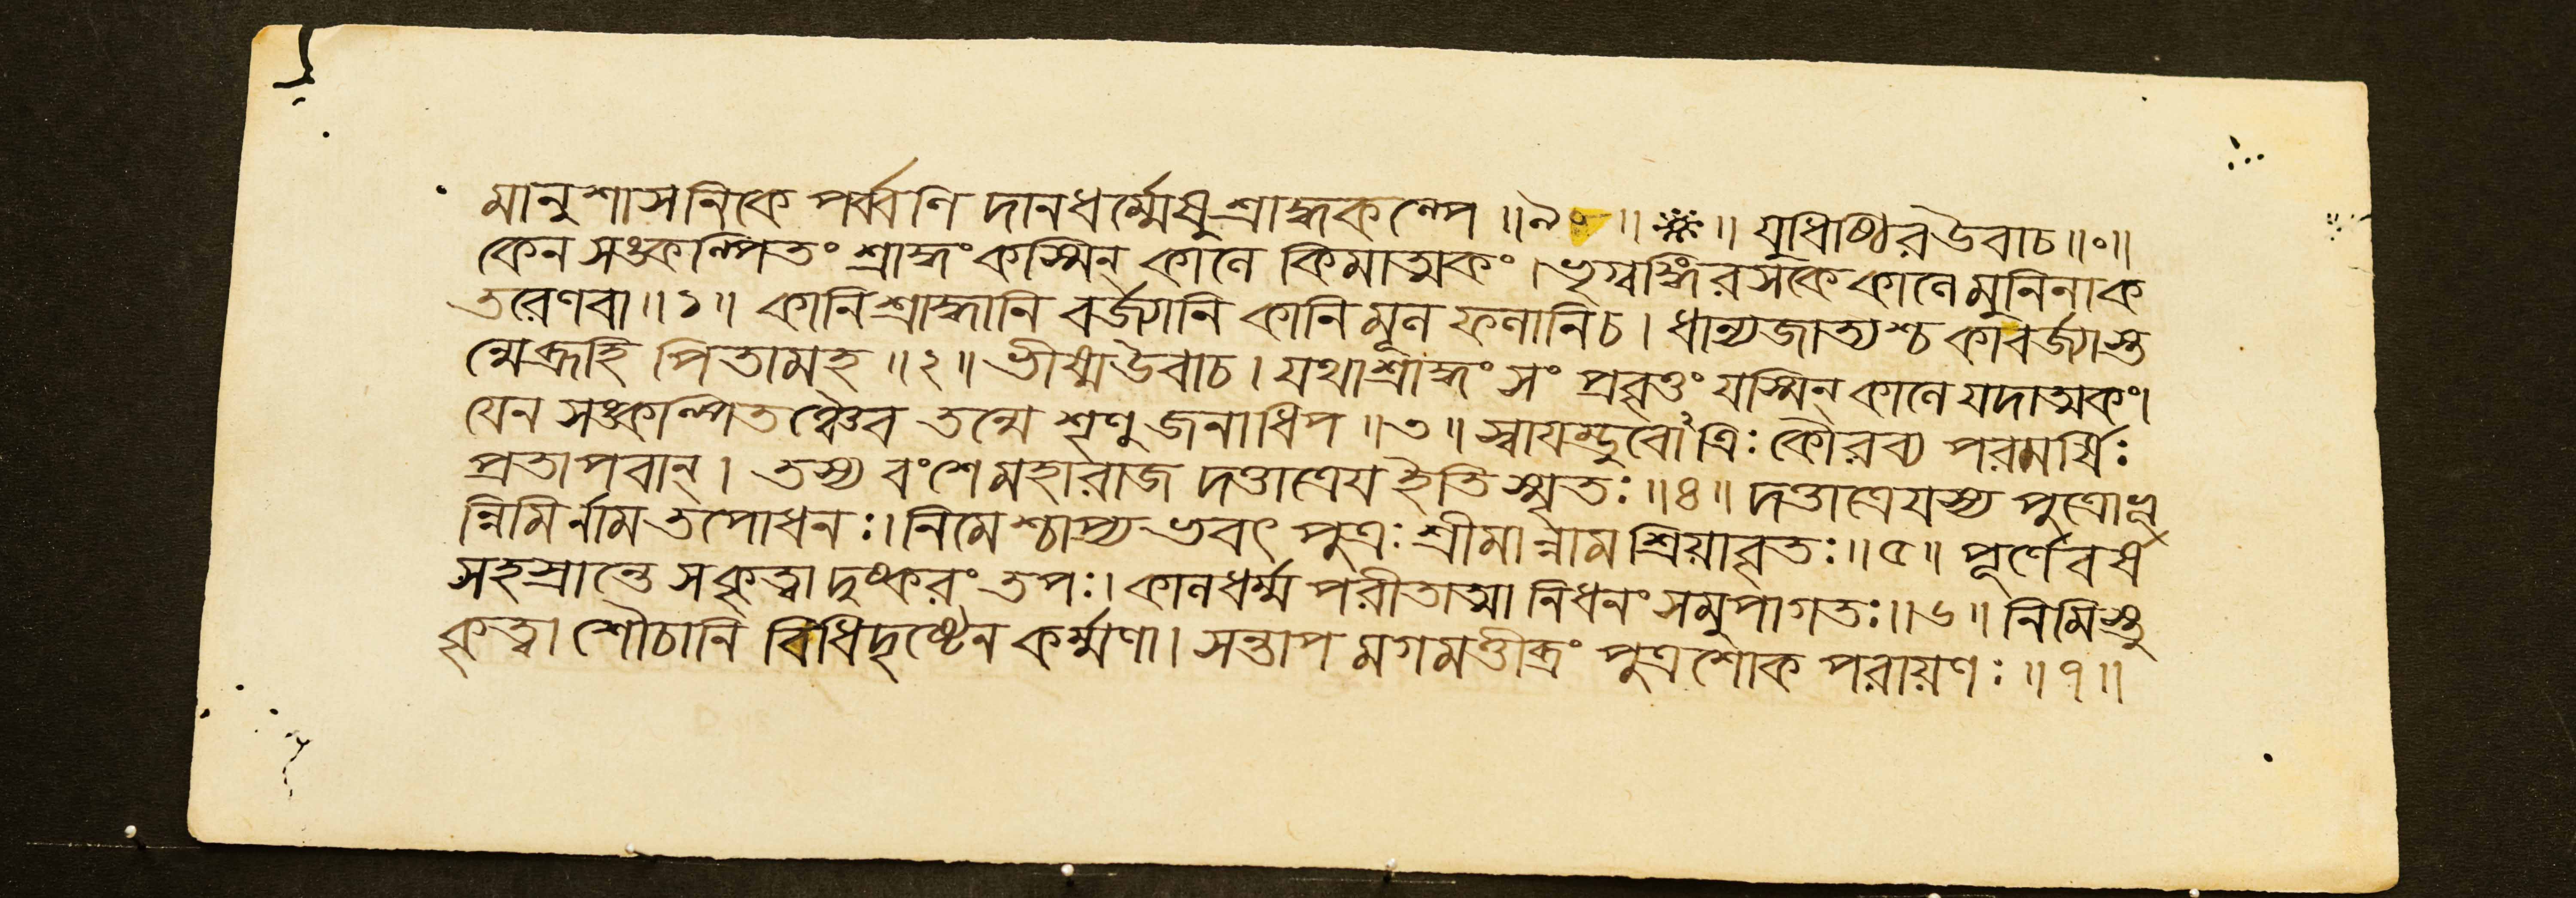 মানুশাসনিকে পর্ব্বণি দানধর্ম্মেষু শ্রাদ্ধকল্পে ॥৯০॥ ※ ॥ যুধিষ্ঠির উবাচ ॥০॥
কেন সঙ্কল্পিতং শ্রাদ্ধং কস্মিন্ কালে কিমাত্মকং । ভৃগ্বঙ্গিরসকে কালে মুনিনা ক
তরেণ বা ॥১॥ কানি শ্রাদ্ধানি বর্জ্যানি কানি মূল ফলানি চ । ধান্যজাত্যশ্চ কা বর্জ্যাস্ত
ন্মে ব্রূহি পিতামহ ॥২॥ ভীষ্ম উবাচ । যথা শ্রাদ্ধং সং প্রবৃত্তং যস্মিন্ কালে যদাত্মকং।
যেন সঙ্কল্পিতঞ্চৈব তন্মে শৃণু জনাধিপ ॥৩॥ স্বাযম্ভুবোঽত্রিঃ কৌরব্য পরমর্ষিঃ
প্রতাপবান্ । তস্য বংশে মহারাজ দত্তাত্রেয ইতি স্মৃতঃ ॥৪॥ দত্তাত্রেযস্য পুত্রোঽভূ
ন্নিমির্নাম তপোধনঃ। নিমেশ্চাপ্যভবৎ পুত্রঃ শ্রীমান্নাম শ্রিয়াবৃতঃ ॥৫॥ পূর্ণে বর্ষ
সহস্রান্তে স কৃত্বা দুষ্করং তপঃ। কালধর্ম্ম পরীতাত্মা নিধনং সমুপাগতঃ॥৬॥ নিমিস্তু
কৃত্বা শৌচানি বিধিদৃষ্টেন কর্ম্মণা। সন্তাপ মগমত্তীব্রং পুত্রশোক পরায়ণঃ ॥৭॥